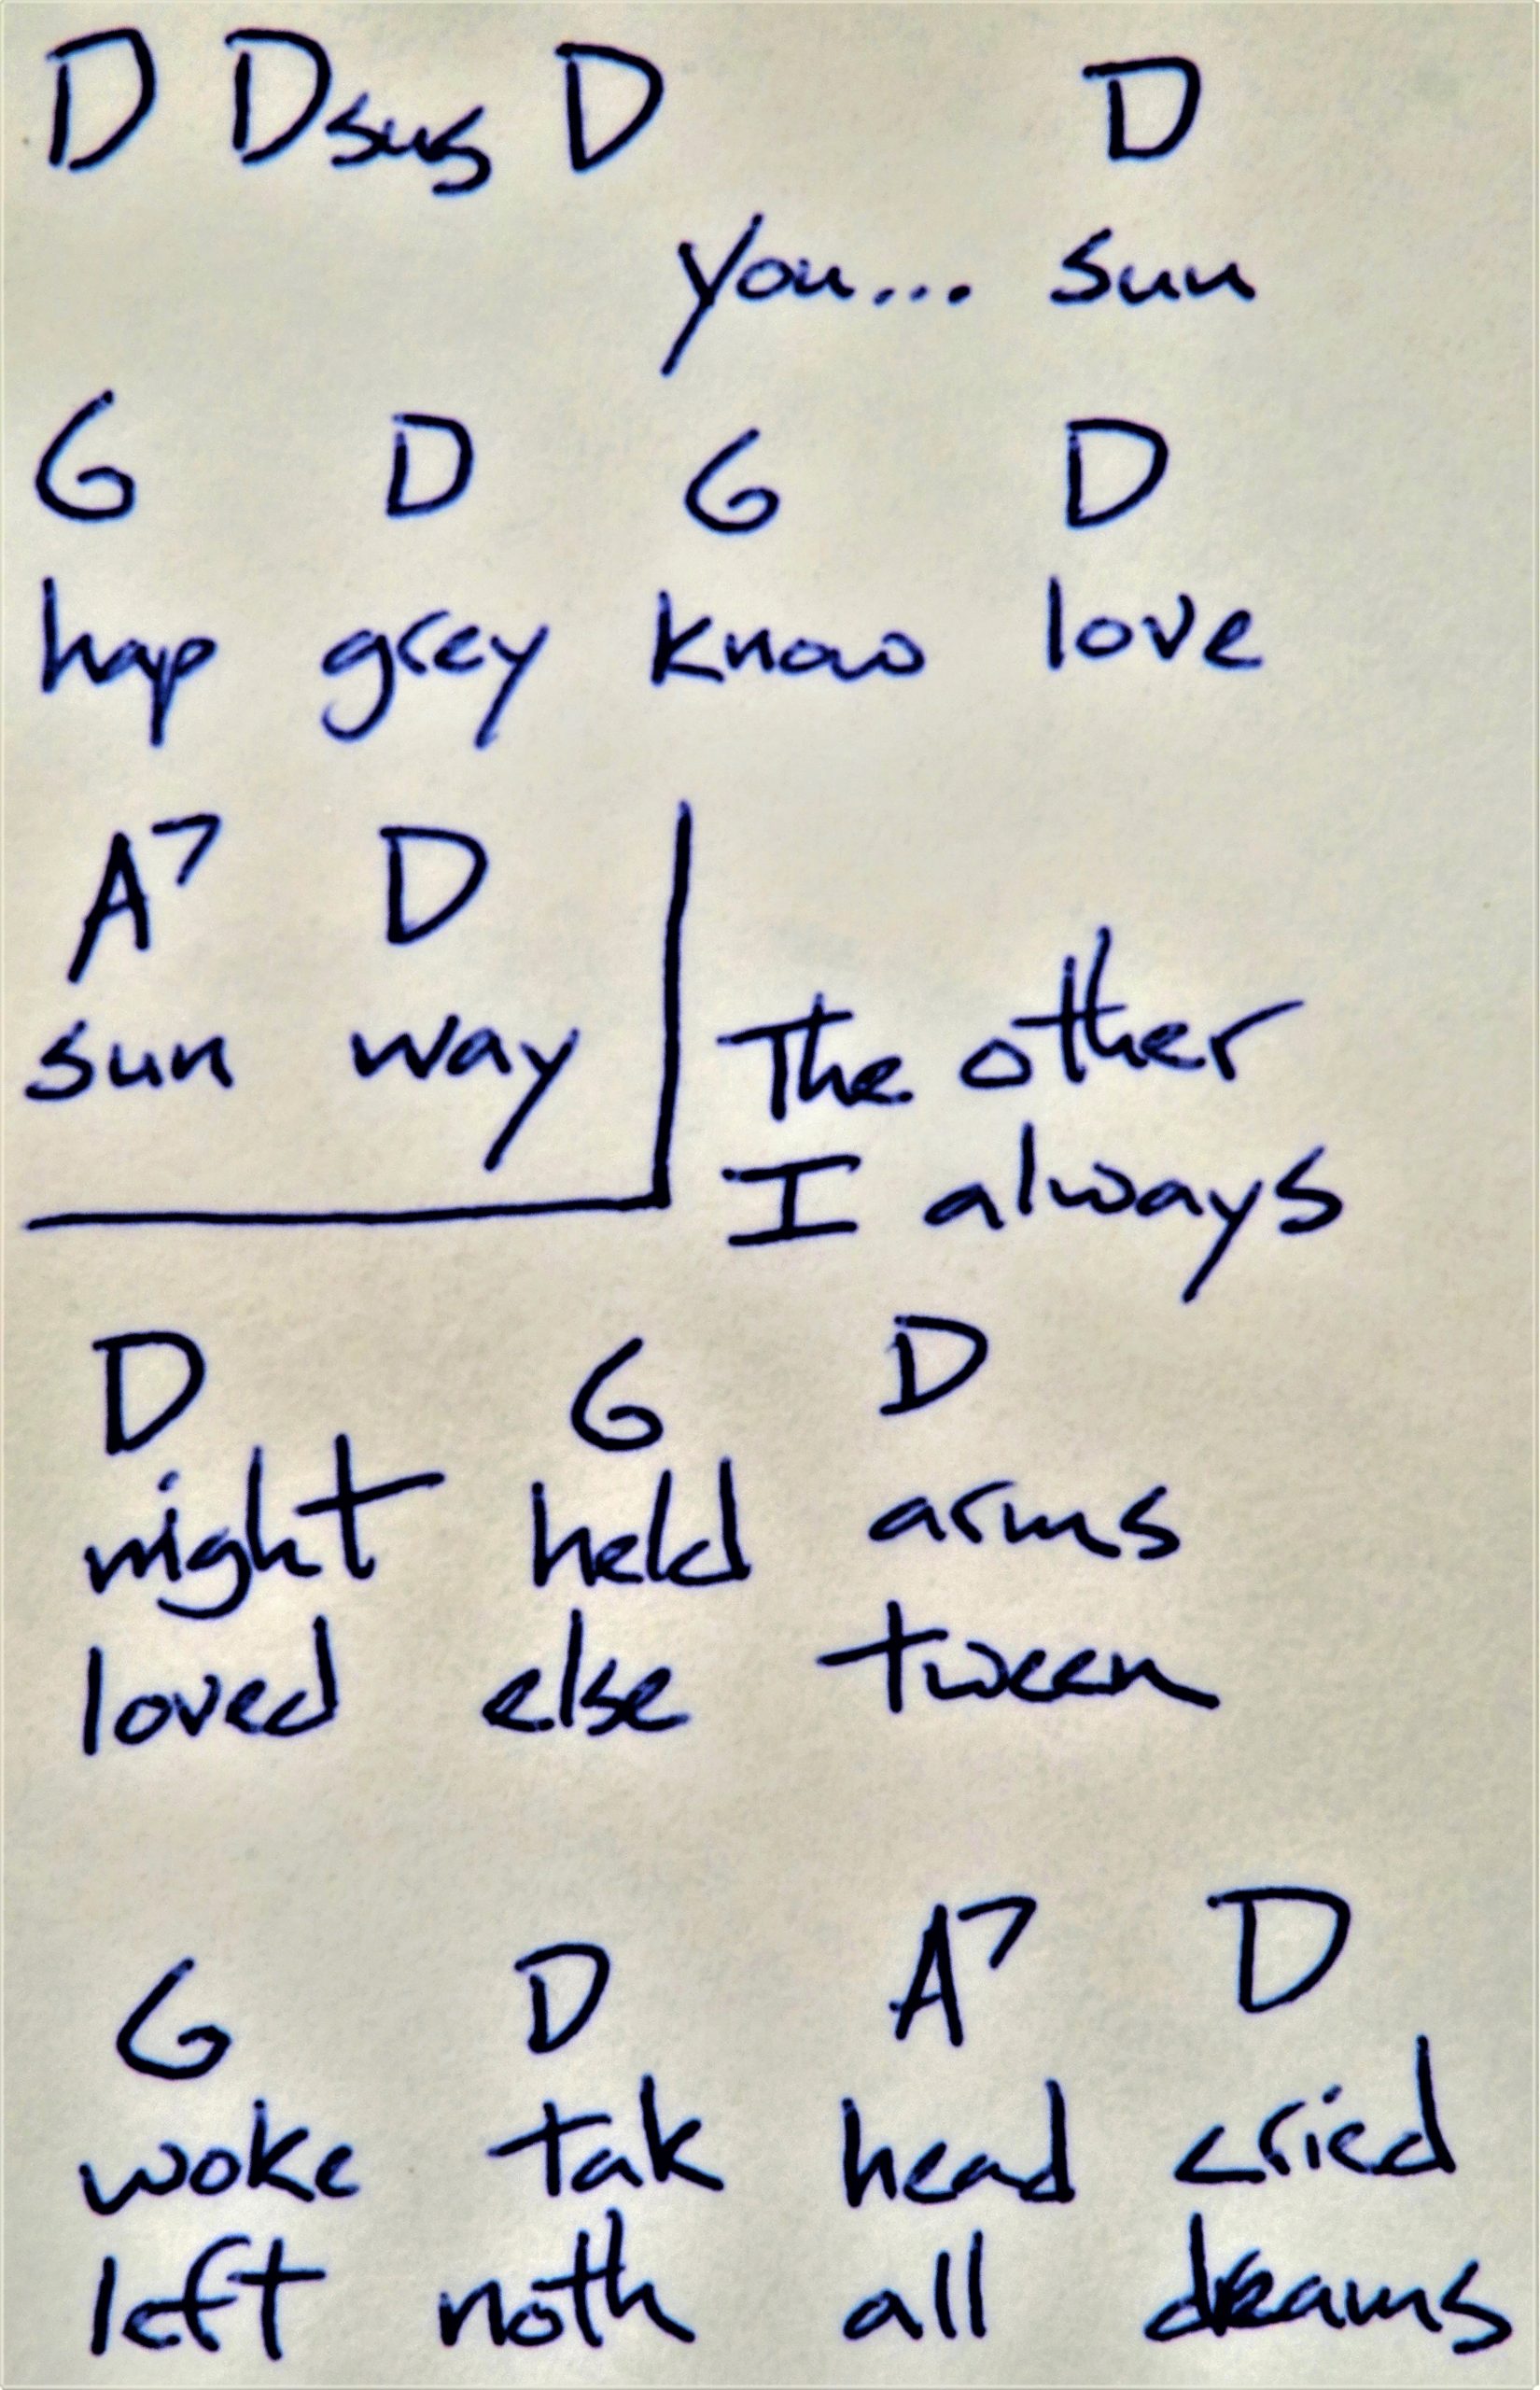 D Dsus D D
you... sun
G D G D
hap grey know love
A7 D
sun way
The other
I always
D G D
night held arms
loved else tween
G D A7 D
woke tak head cried
left noth all dreams